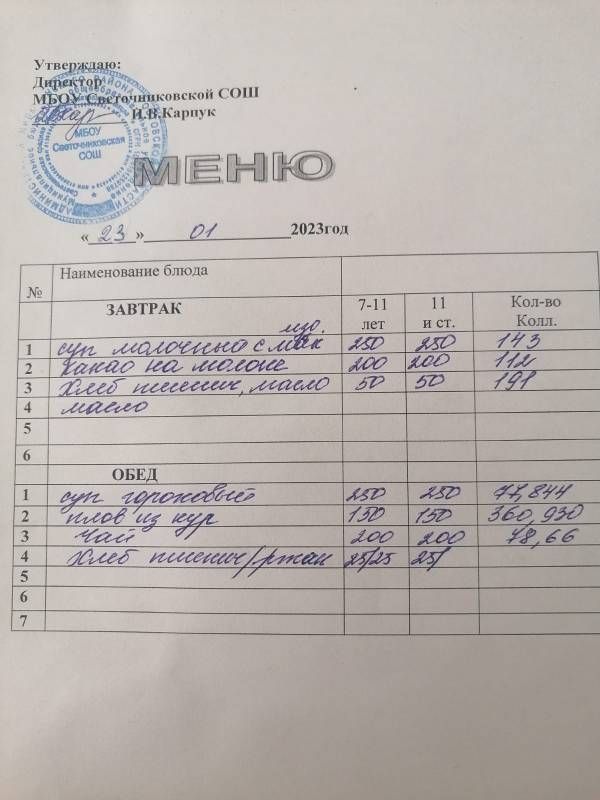 Утверждаю:
Директор
МБОУ Светочниковской СОШ
И.В.Карпук
МБОУ
Светочниковская
СОШ
МЕНЮ
« 23 » 01 2023год
№ Наименование блюда
ЗАВТРАК 7-11 лет 11 и ст. Кол-во Колл.
изд.
1 суп молочный с мак 250 250 143
2 Какао на молоке 200 200 112
3 Хлеб пшенич, масло 50 50 191
4 масло
5
6
ОБЕД
1 суп гороховый 250 250 77,844
2 плов из кур 150 150 360,930
3 Чай 200 200 78,66
4 Хлеб пшенич/ржан 25/25 25/
5
6
7